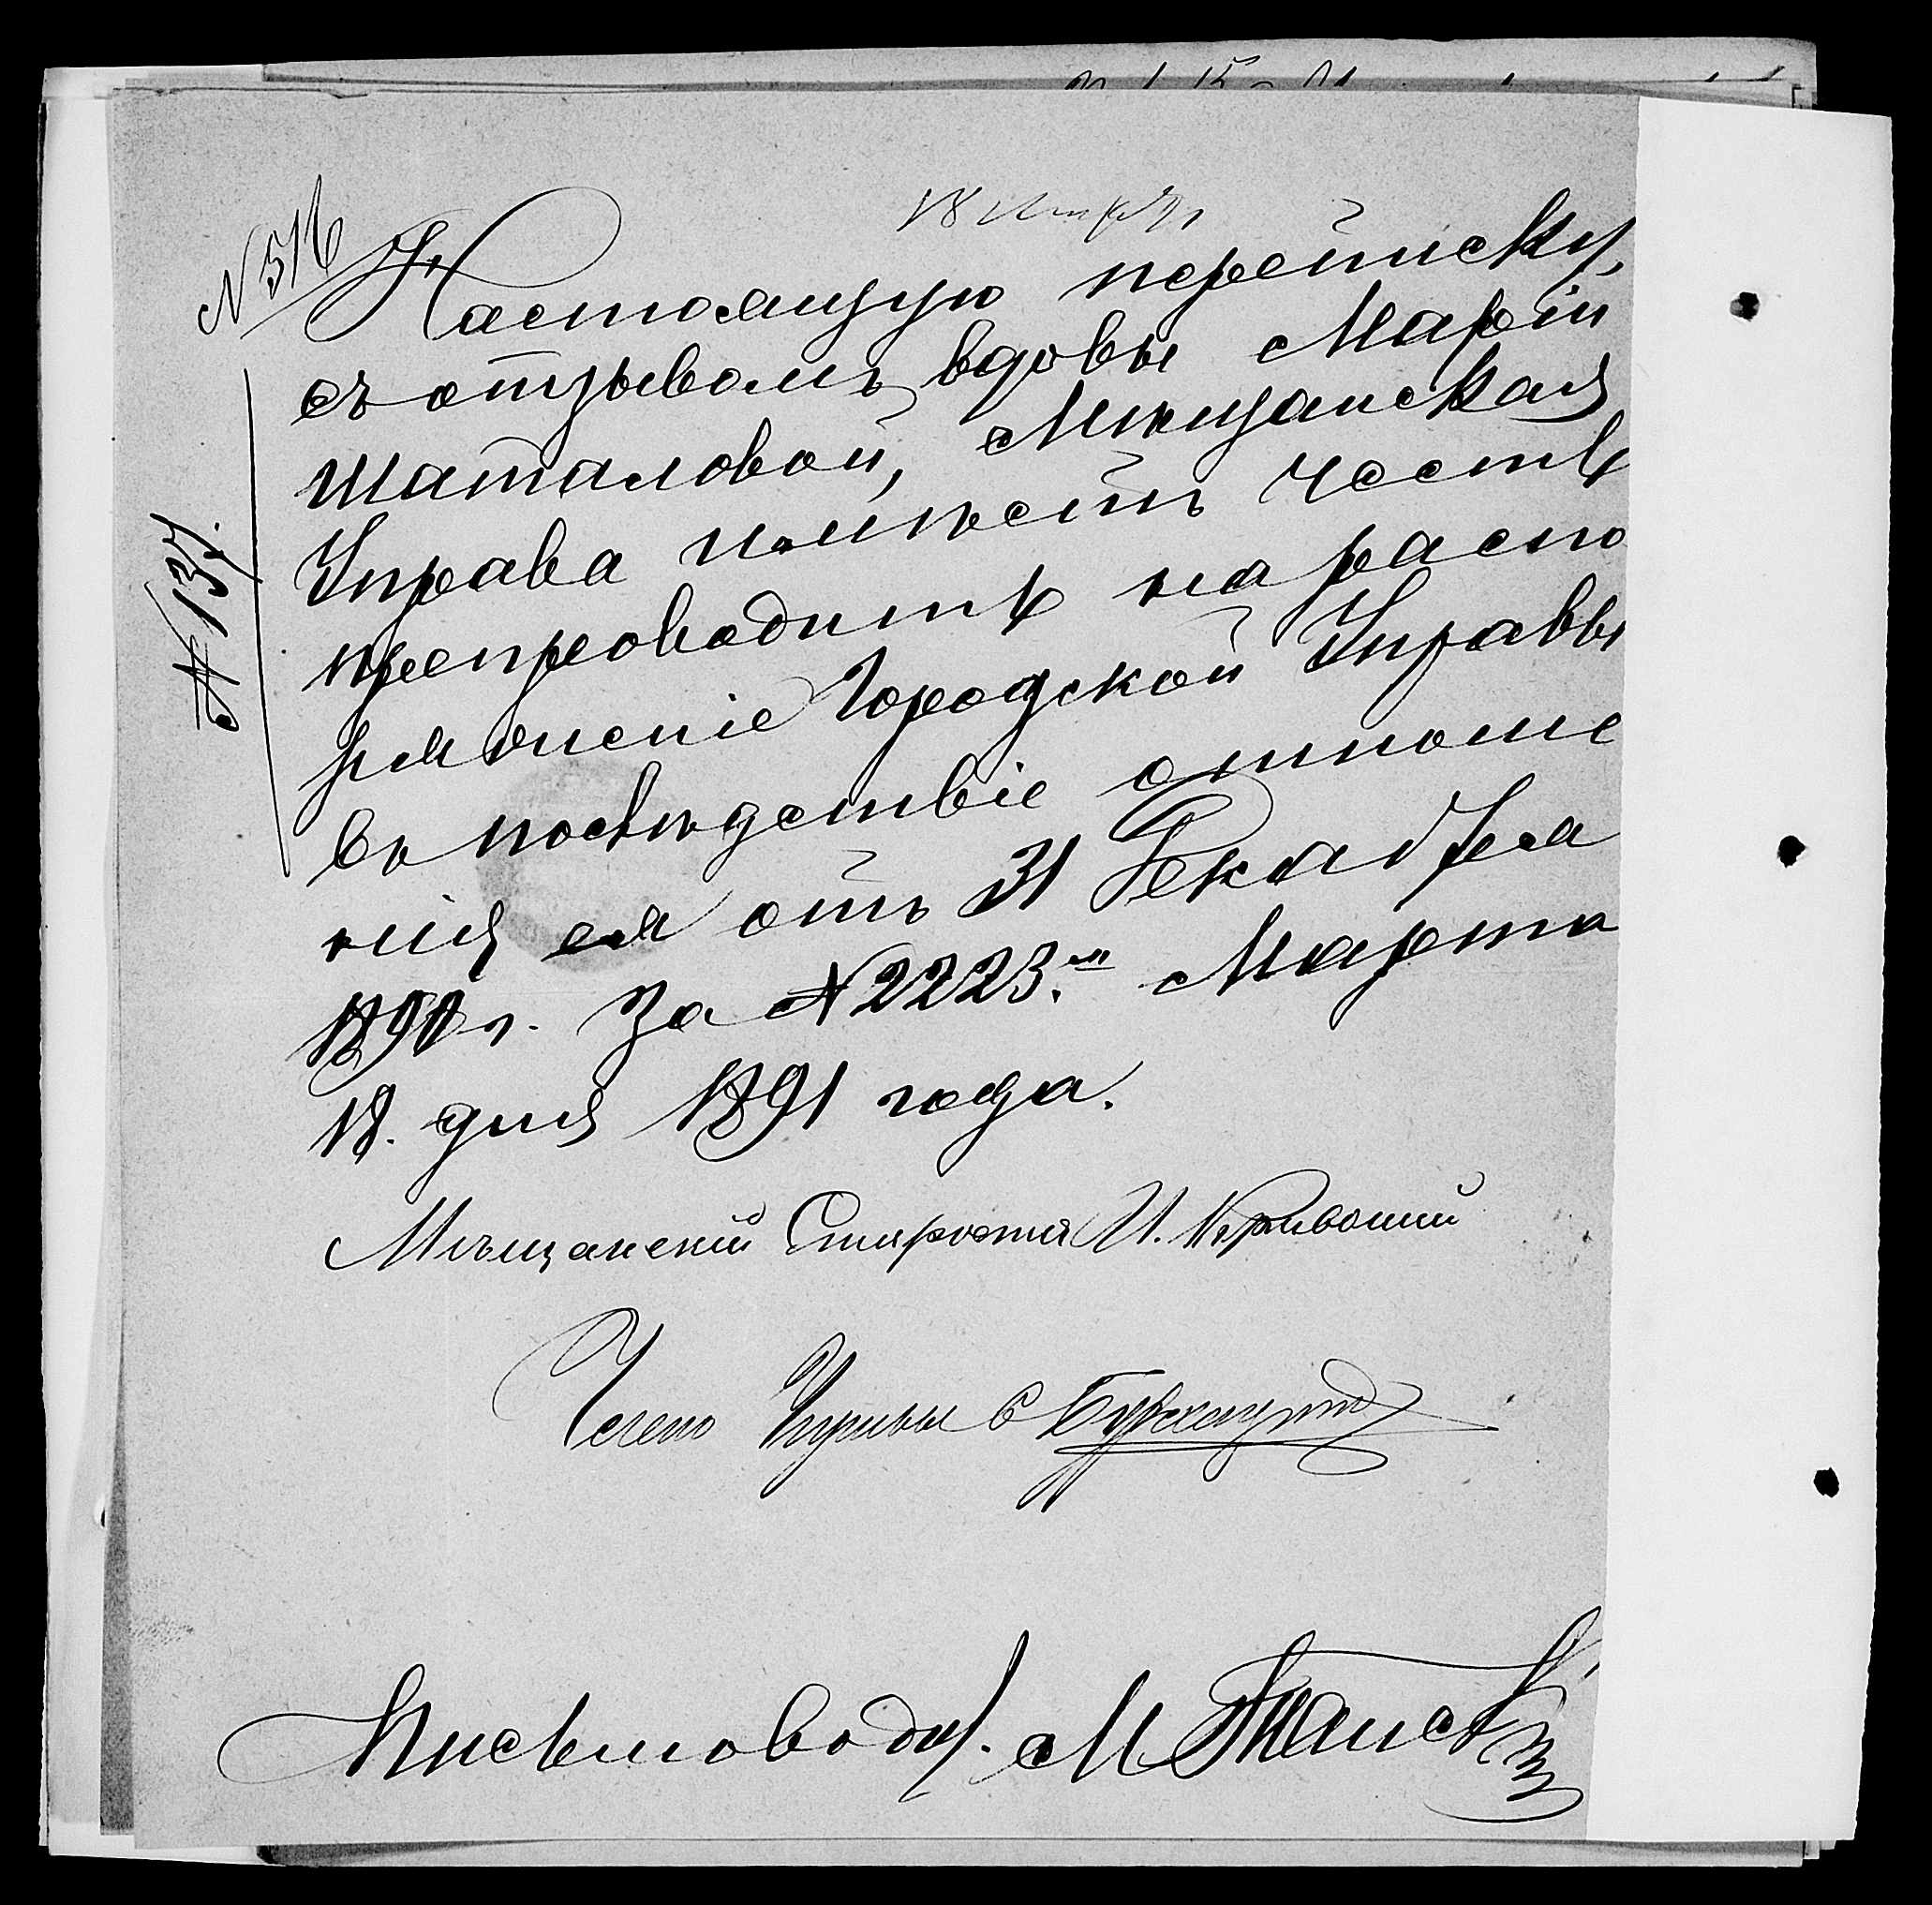 N 516
18 Марта
Настоящую переписку,
съ отзывомъ вдовы Маріи
Шаталовой, Мѣщанская
Управа имѣетъ честь
препроводить на распо
ряженіе Городской Управы
въ послѣдствіе отноше
нія ея отъ 31 Декабря
1890 г. За N 2223. Марта
18. дня 1891 года.
N 137.
Мѣщанскій Староста И. Кривошии
Члено Управы
Письмоводи. М